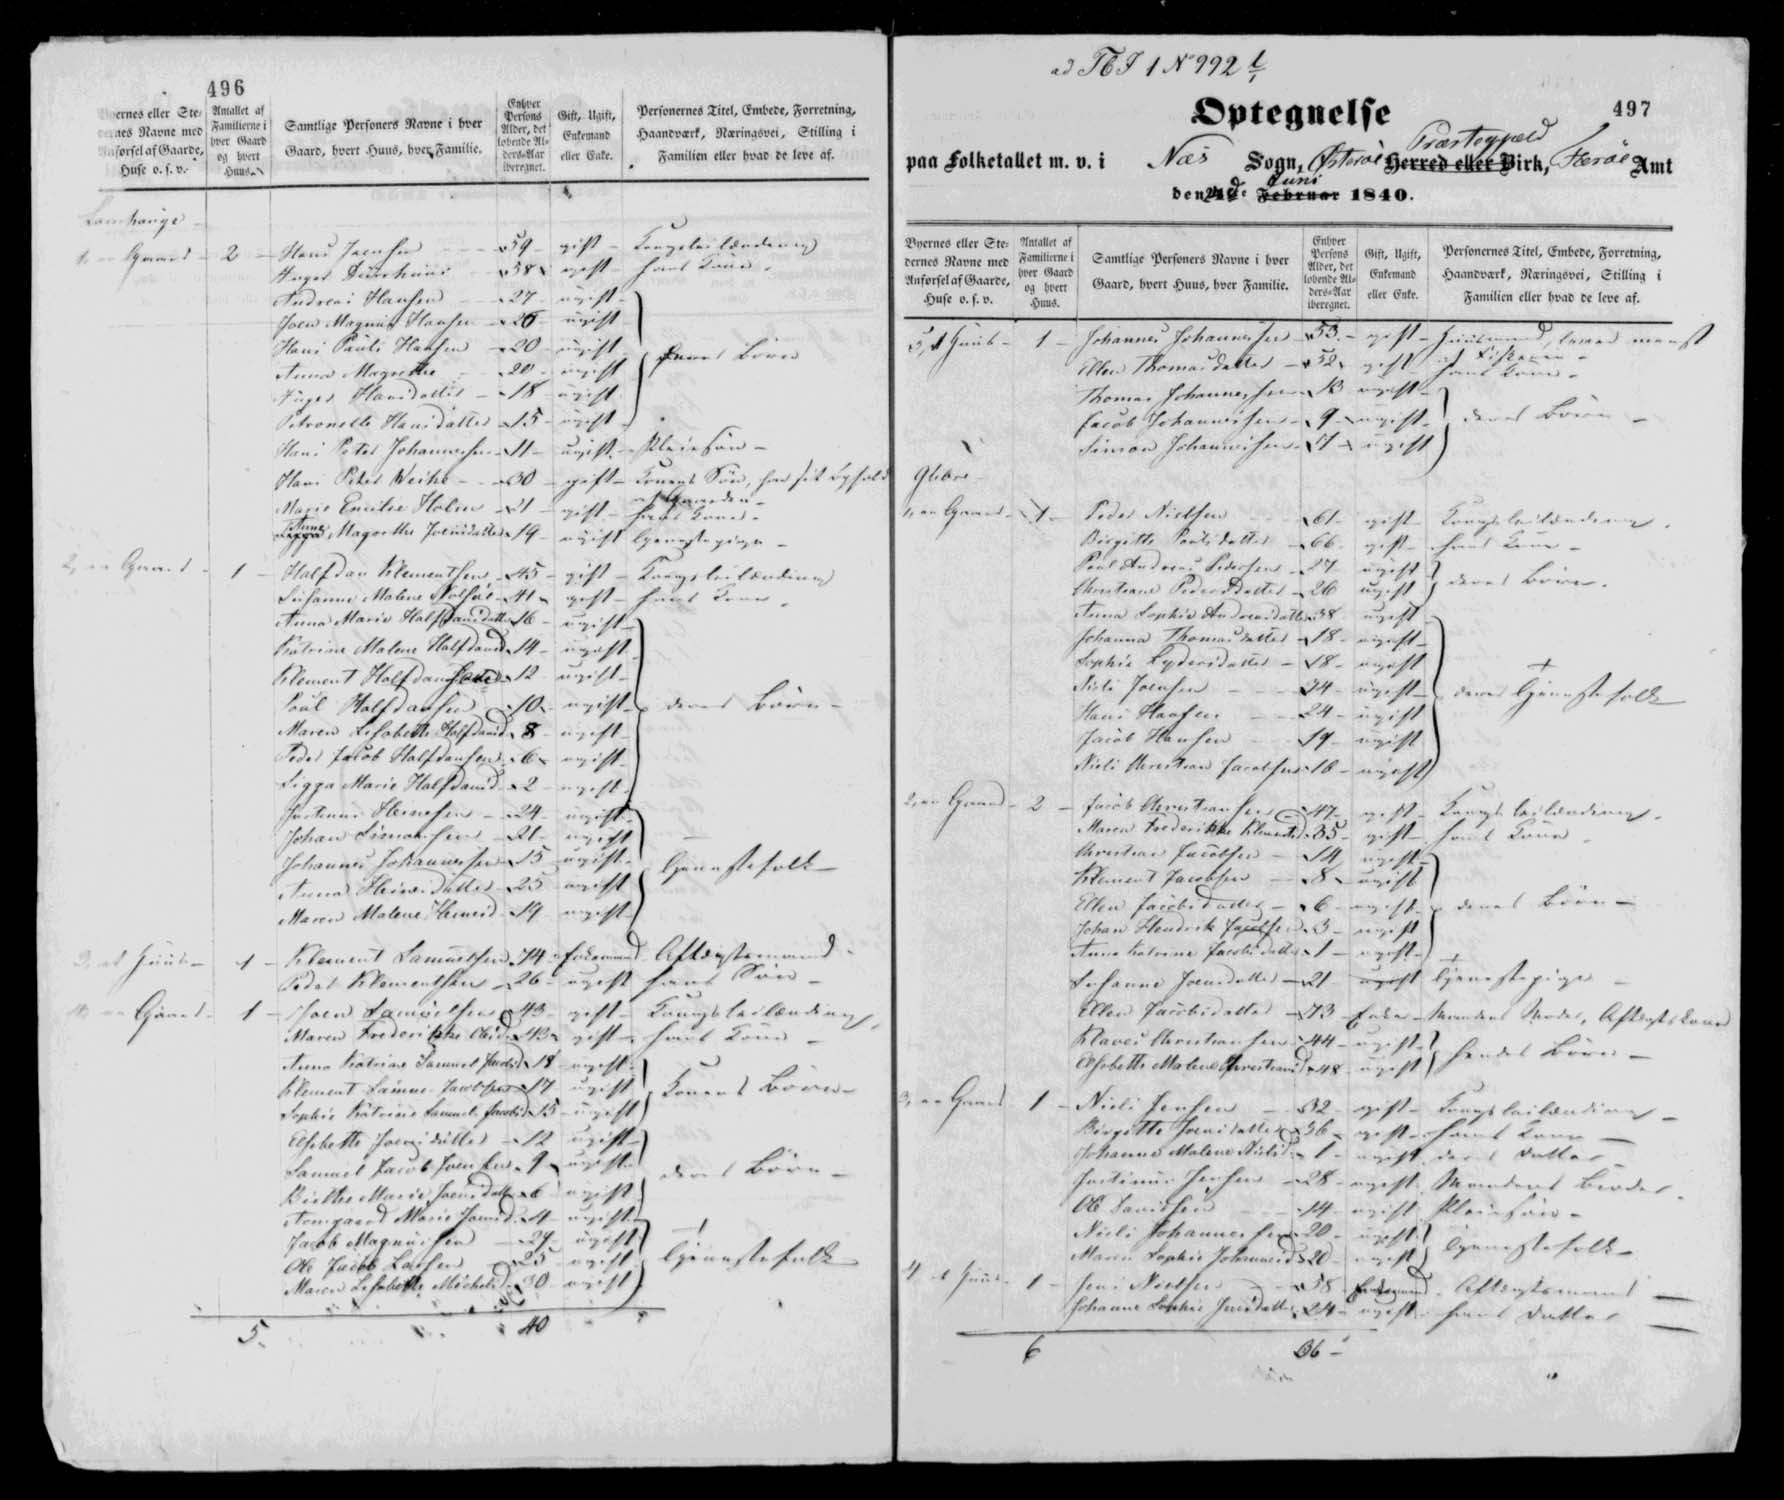 496
Byernes eller Stedernes Navne med Anførsel af Gaarde, Huse o. s. v.
Antallet af Familierne i hver Gaard og hvert Huus.
Samtlige Personers Navne i hver Gaard, hvert Huus, hver Familie.
Enhver Persons Alder, det løbende Alders-Aar iberegnet.
Gift, Ugift, Enkemand eller Enke.
Personernes Titel, Embede, Forretning, Haandværk, Næringsvei, Stilling i Familien eller hvad de leve af.
Lamhauge
1, en Gaard 2 Hans Joensen 59 gift Kongsleilænding
38 gift hans Kone
Andreas Hansen 27 ugift
Joen Magnus Hansen 26 ugift
Hans Pauli Hansen 20 ugift
Anna Magrethe 20 ugift deres Børn
Inger Hansdatter 18 ugift
Petronelle Hansdatter 15 ugift
Hans Peter Johannesen 11 ugift Pleiesön
Hans Peter Weihe 30 gift Konens Sön, har sit Ophold af Gaarden
Marie Emilie Holm 21 gift hans Kone
Anne Magrethe Joensdatter 19 ugift Tjenestepige
2, en Gaard 1 Halfdan Klementsen 45 gift Kongsleilænding
Susanne Malene 41 gift hans Kone
Anna Marie Halfdansdatter 16 ugift
Katrine Malene Halfdansd 14 ugift
Klement Halfdansen 12 ugift
Poul Halfdansen 10 ugift deres Børn
Maren Elsebeth Halfdansd 8 ugift
Peder Jacob Halfdansen 6 ugift
Sigga Marie Halfdansd 2 ugift
Justinus Heinesen 24 ugift
Johan Simonsen 21 ugift
Johannes Johannesen 15 ugift Tjenestefolk
Anna Heinesdatter 25 ugift
Maren Malene Heinesd 19 ugift
3, et Huus 1 Klement Samuelsen 74 Enkemand Aftægtsmand
Peder Klementsen 26 ugift hans Sön
4, en Gaard 1 Joen Samuelsen 43 gift Kongsleilænding
Maren Frederikke Olesd 43 gift hans Kone
Anna Katrine Samuel Jacobsd 18 ugift
Klement Samuel Jacobsen 17 ugift Konens Børn
Sophie Katrine Samuel Jacobsd 15 ugift
Elsebeth Joensdatter 12 ugift
Samuel Jacob Joensen 9 ugift deres Børn
Birthe Marie Joensdatter 6 ugift
Armgaard Marie Joensd 4 ugift
Jacob Magnusen 29 ugift
Ole Jacob Larsen 25 ugift Tjenestefolk
Maren Elsebeth Michelsd 30 ugift
5. 40
ad TbJ 1 No 992
497
Optegnelse
paa Folketallet m. v. i Næs Sogn, Østerøe Præstegjeld Herred eller Birk, Færöe Amt
den 24de Juni Februar 1840.
Byernes eller Stedernes Navne med Anførsel af Gaarde, Huse o. s. v.
Antallet af Familierne i hver Gaard og hvert Huus.
Samtlige Personers Navne i hver Gaard, hvert Huus, hver Familie.
Enhver Persons Alder, det løbende Alders-Aar iberegnet.
Gift, Ugift, Enkemand eller Enke.
Personernes Titel, Embede, Forretning, Haandværk, Næringsvei, Stilling i Familien eller hvad de leve af.
5, et Huus 1 Johannes Johannesen 53 gift Huusmand, lever meest af Fiskerie
Ellen Thomasdatter 52 gift hans Kone
Thomas Johannesen 13 ugift
Jacob Johannesen 9 ugift deres Børn
Simon Johannesen 7 ugift
Glibre
1, en Gaard 1 Peder Nielsen 61 gift Kongsleilænding
Birgitte Poulsdatter 66 gift hans Kone
Poul Andreas Pedersen 27 ugift
Christiane Pedersdatter 26 ugift deres Børn
Anna Sophie Andreasdatter 38 ugift
Johanna Thomasdatter 18 ugift
Sophie 18 ugift
Niels Joensen 34 ugift deres Tjenestefolk
Hans Hansen 24 ugift
Jacob Hansen 19 ugift
Niels Christian Jacobsen 16 ugift
2, en Gaard 2 Jacob Christiansen 47 gift Kongsleilænding
Maren Frederikke Klementsd 35 gift hans Kone
Christian Jacobsen 14 ugift
Klement Jacobsen 8 ugift
Ellen Jacobsdatter 6 ugift deres Børn
Johan Hendrik Jacobsen 3 ugift
Anna Katrine Jacobsdatter 1 ugift
Susanne Joensdatter 21 ugift Tjenestepige
Ellen Jacobsdatter 73 Enke Mandens Moder, Aftægtskone
Klaves Christiansen 44 ugift
Elsebeth Malene Christiansd 48 ugift hendes Børn
3, en Gaard 1 Niels Jensen 32 gift Kongsleilænding
Birgitte Joensdatter 36 gift hans Kone
Johanne Malene Nielsd 1 ugift deres Datter
Justinus Jensen 28 ugift Mandens Broder
Ole 14 ugift Pleiesön
Niels Johannesen 20 ugift
Maren Sophie Johannesd 20 ugift Tjenestefolk
4 et Huus 1 Jens Nielsen 58 Enkemand Aftægtsmand
Johanne Sophie Jensdatter 24 ugift hans Datter
6 36